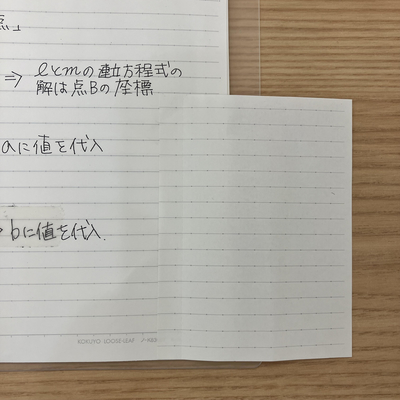 点」
⇒ lとmの連立方程式の
解は点Bの座標
aに値を代入
bに値を代入.
KOKUYO LOOSE-LEAF